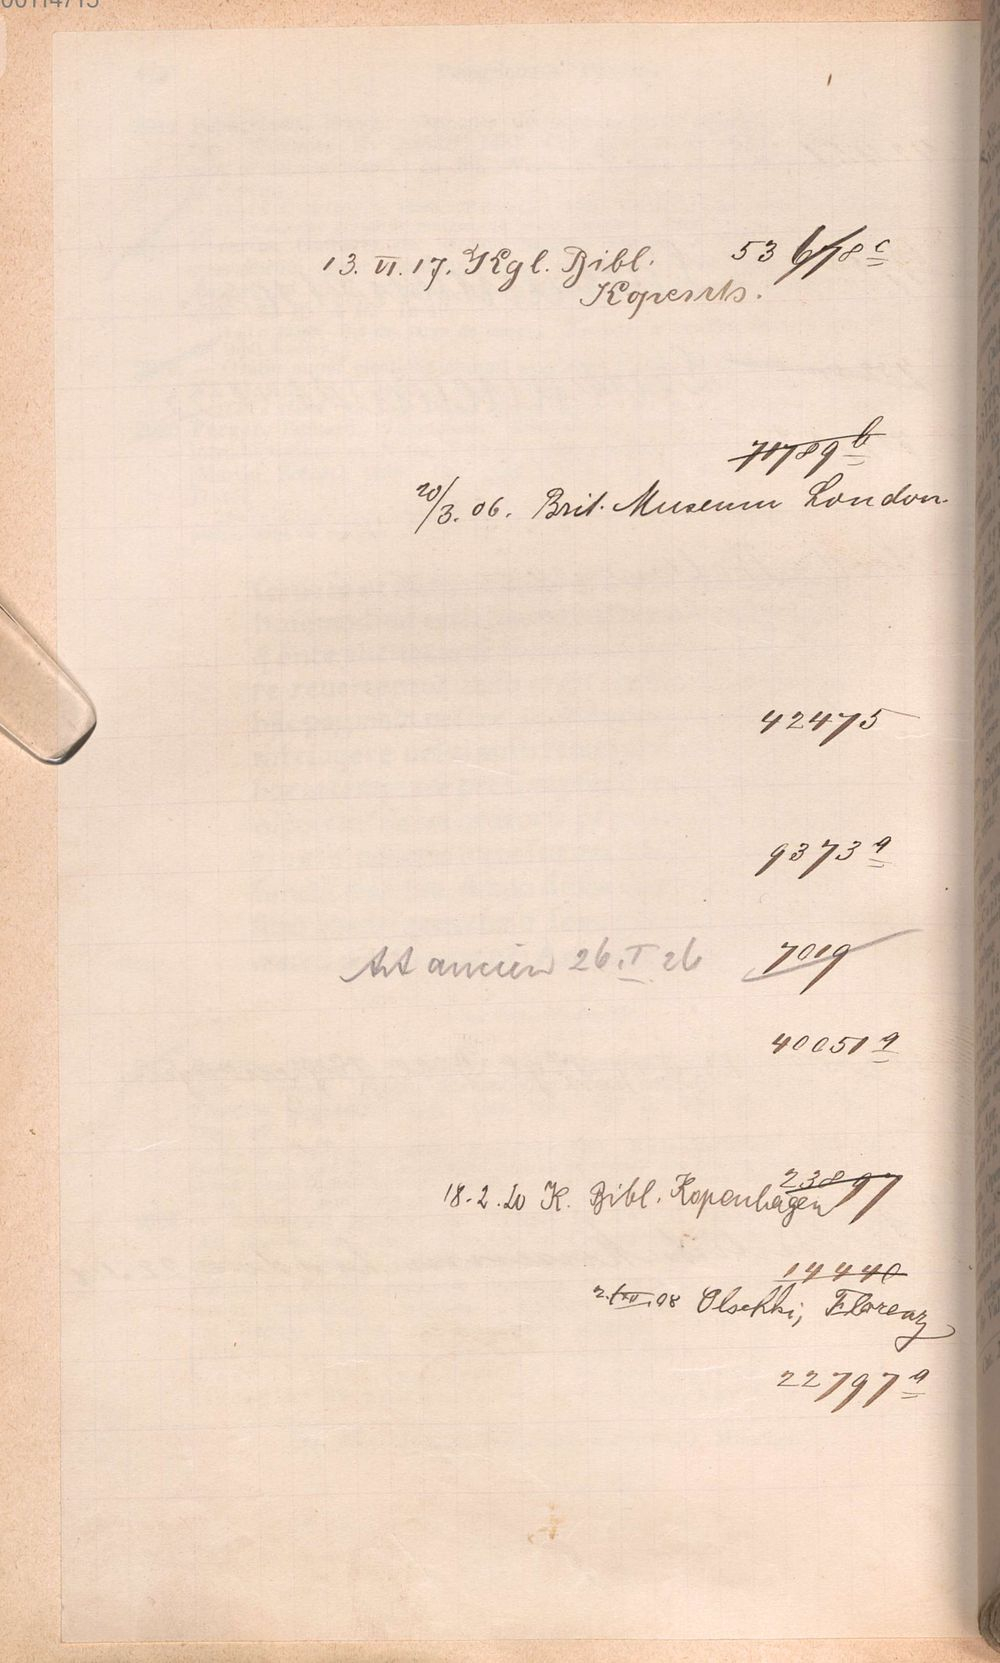 00114715
13. VI. 17. Kgl. Bibl. 53678 c
Kopenh.
71789 b
20/3. 06. Brit. Museum London.
42475
9373 a
Art ancien 26. I 26 7019
40051 a
23897
18. 2. 20 K. Bibl. Kopenhagen
14440
08 Olschki, Florenz
22797 a